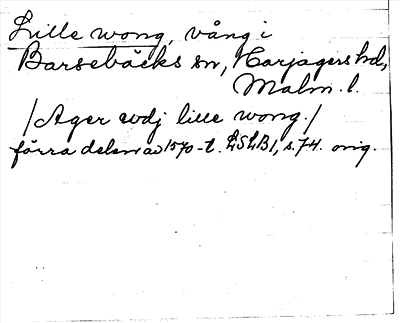 Lille wong, vång i
Barsebäcks sn, Harjagers hd,
Malm. l.
/Ager udj lille wong./
förra delen av 1570-t. LSLB1, s. 74. orig.